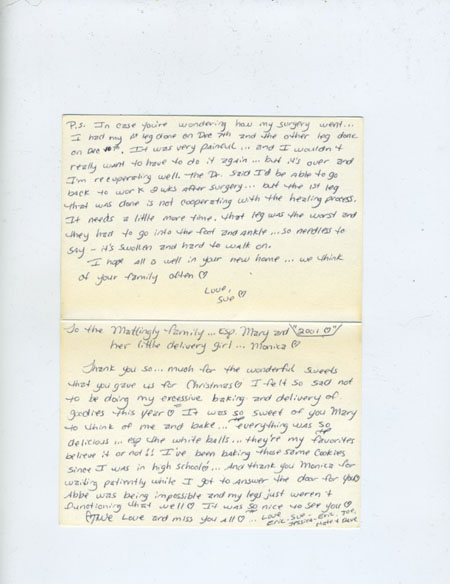 P.S. In case you're wondering how my surgery went...
I had my 1st leg done on Dec 7th and the other leg done
on Dec. It was very painful... and I wouldn't
really want to have to do it again... but it's over and
I'm recuperating well. The Dr. said I'd be able to go
back to work wks after surgery... but the 1st leg
that was done is not cooperating with the healing process.
It needs a little more time. that leg was the worst and
they had to go into the foot and ankle... so needless to
say - it's swollen and hard to walk on.
I hope all is well in your new home... we think
of your family often ♡
Love,
Sue ♡
To the Mattingly family... esp Mary and "2001 ♡"
her little delivery girl... Monica ♡
Thank you so... much for the wonderful sweets
that you gave us for Christmas ♡ I felt so sad not
to be doing my excessive baking and delivery of
goodies this year ♡ It was so sweet of you Mary
to think of me and bake... everything was so
delicious... esp the white balls... they're my favorites
believe it or not!! I've been baking those same cookies
since I was in high school!... And thank you Monica for
waiting patiently while I got to answer the door for you ♡
Abbe was being impossible and my legs just weren't
functioning that well ♡ It was so nice to see you ♡
We Love and miss you all ♡... Love, Eric, Sue,
Jessica, Eric, Joe,